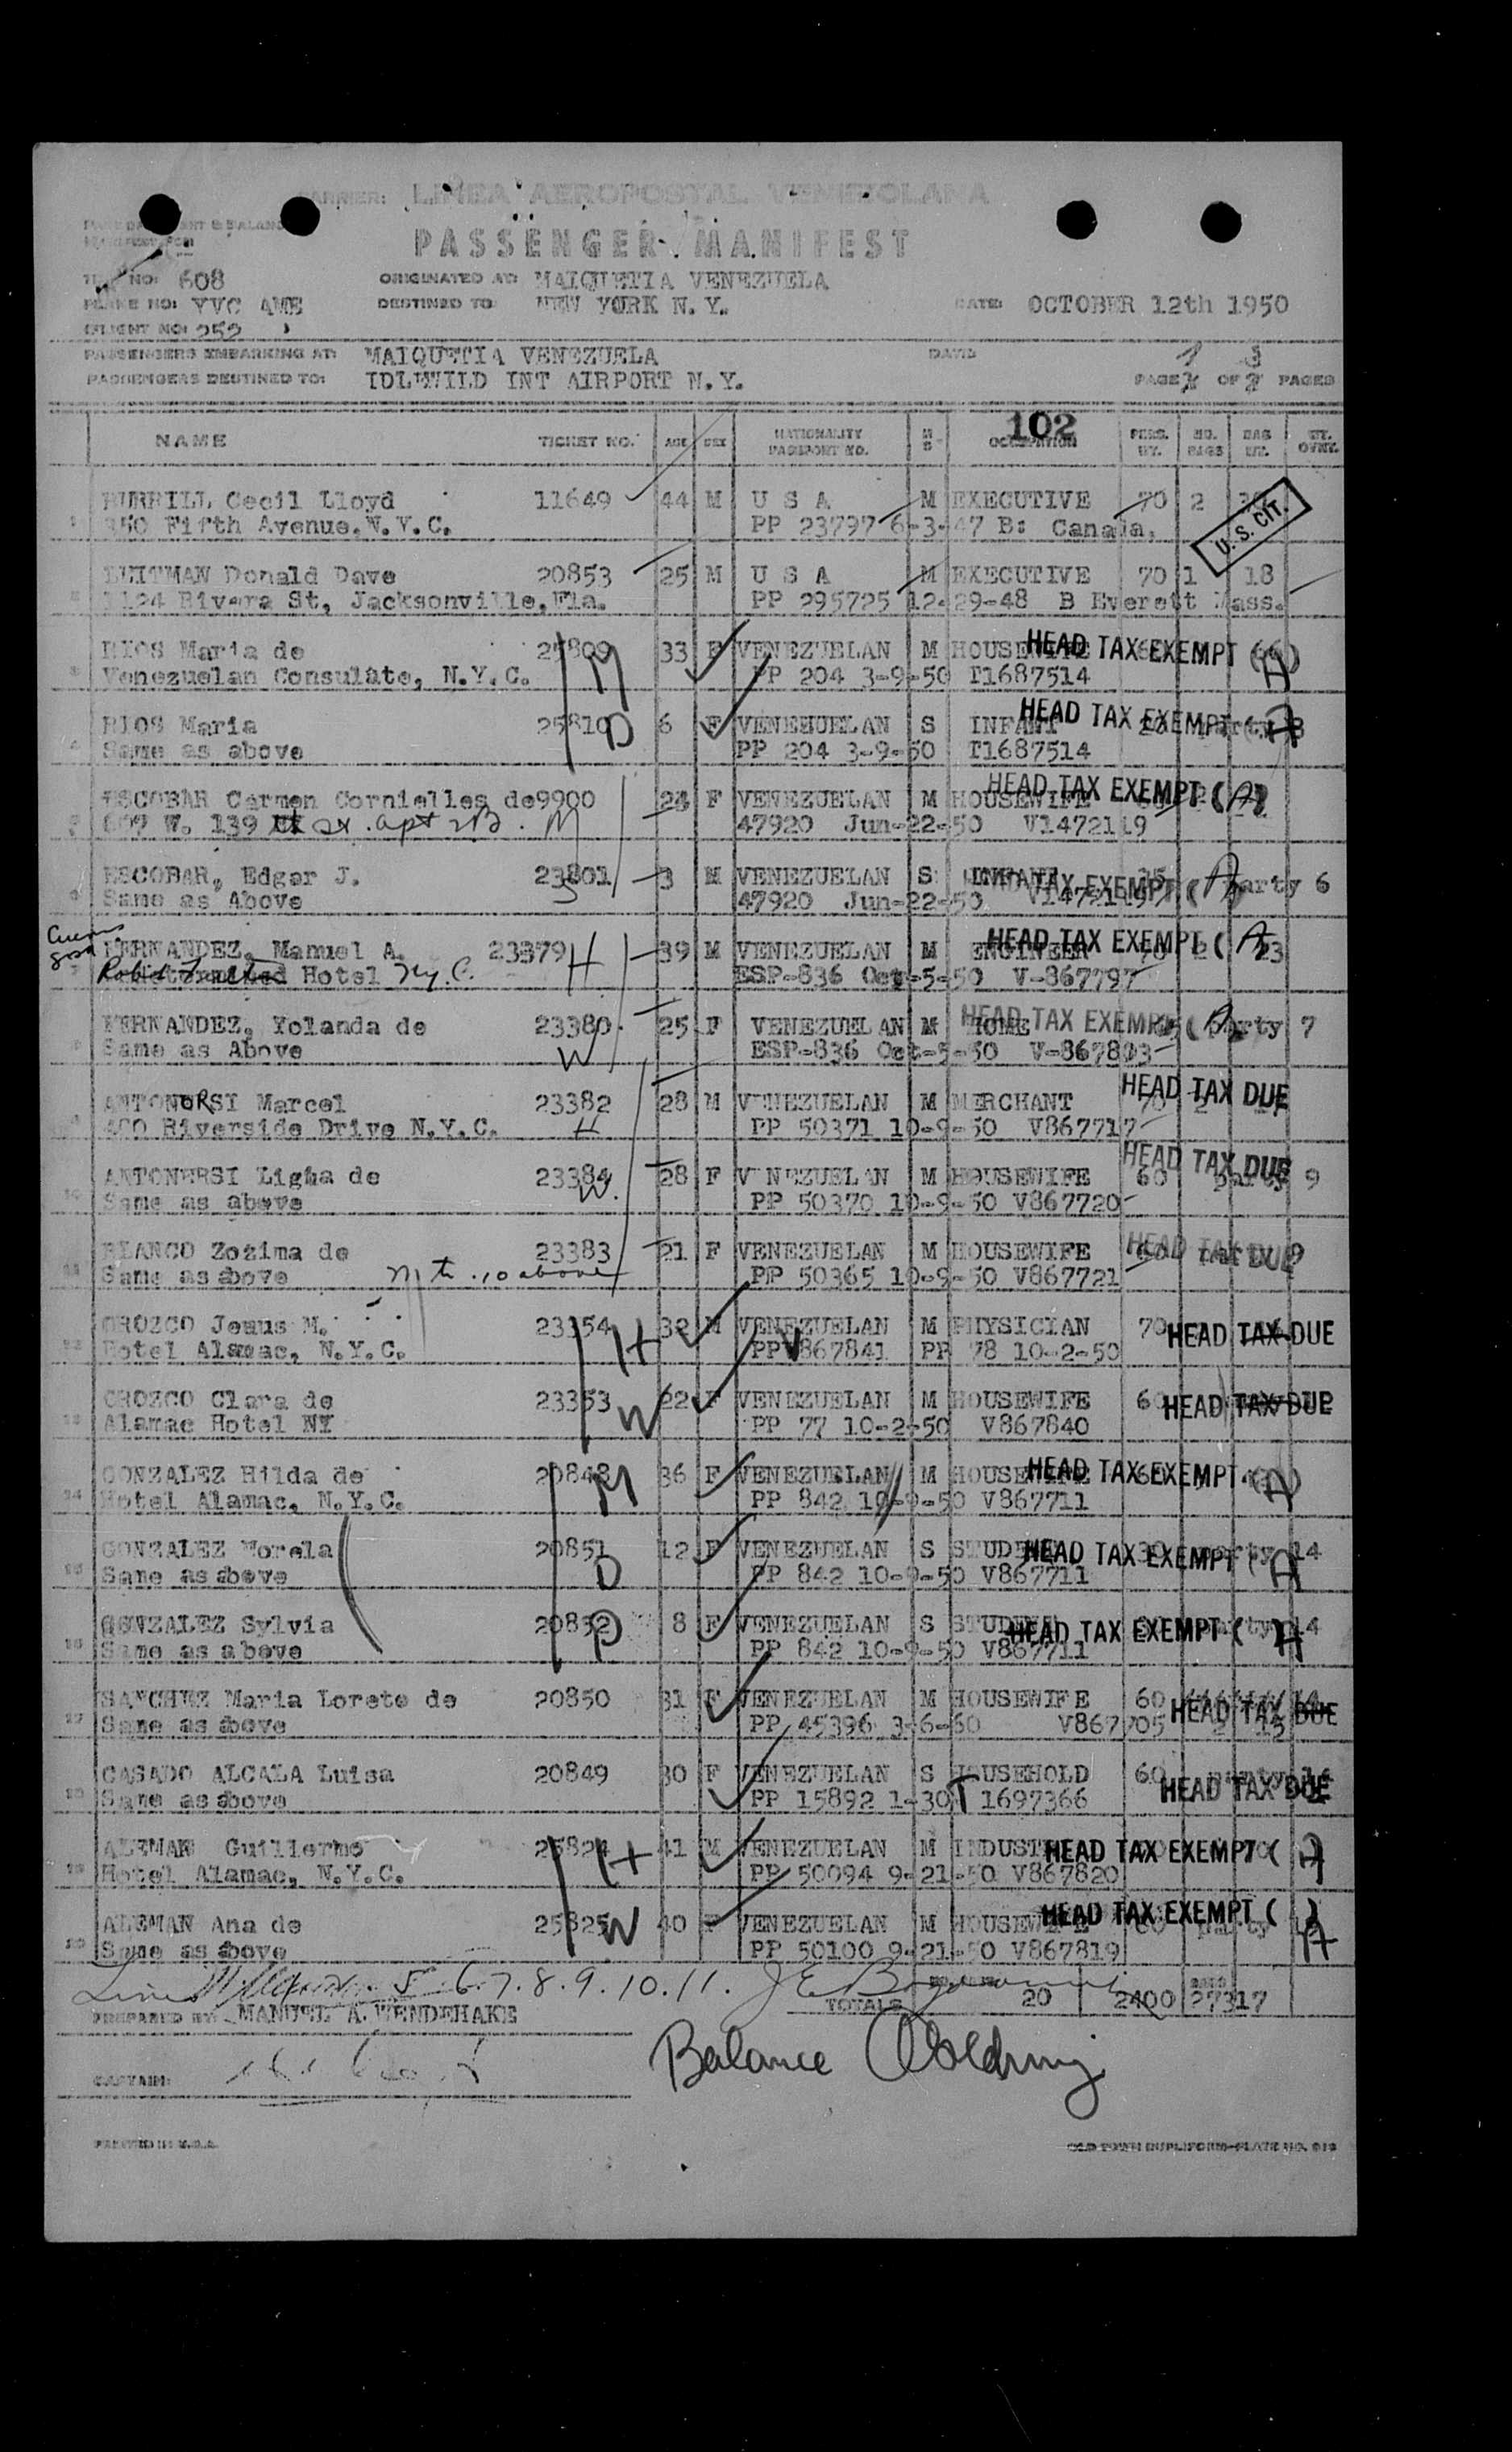 CARRIER: LINEA AEROPOSTAL VENEZOLANA
PASSENGER MANIFEST
NO: 608 ORIGINATED AT: MAIQUETIA VENEZUELA
PLANE NO: YVC AME DESTINED TO: NEW YORK N.Y. DATE: OCTOBER 12th 1950
FLIGHT NO: 252
PASSENGERS EMBARKING AT: MAIQUETIA VENEZUELA DATE
PASSENGERS DESTINED TO: IDLEWILD INT AIRPORT N.Y. PAGE 1 OF 3 PAGES
102
NAME TICKET NO. AGE SEX NATIONALITY PASSPORT NO. M S OCCUPATION PERS. WT. NO. BAGS BAG WT. WT. OVWT.
BURRILL Cecil Lloyd 11649 44 M U S A M EXECUTIVE 70 2
1 350 Fifth Avenue, N.Y.C. PP 23797 6-3-47 B: Canada. U.S. CIT.
Donald Dave 20853 25 M U S A M EXECUTIVE 70 1 18
2 1124 Rivera St, Jacksonville, Fla. PP 295725 12-29-48 B Everett Mass.
RIOS Maria de 25809 M 33 F VENEZUELAN M HOUSEWIFE HEAD TAX EXEMPT (A)
3 Venezuelan Consulate, N.Y.C. PP 204 3-9-50 T1687514
RIOS Maria 25810 D 6 F VENEZUELAN S INFANT HEAD TAX EXEMPT (A) party 3
4 Same as above PP 204 3-9-50 T1687514
ESCOBAR Carmen Cornielles de 9900 24 F VENEZUELAN M HOUSEWIFE HEAD TAX EXEMPT (A)
5 609 W. 139 st. apt 2B. M 47920 Jun-22-50 V1472119
ESCOBAR, Edgar J. 23801 3 M VENEZUELAN S INFANT HEAD TAX EXEMPT (A) party 6
6 Same as Above S 47920 Jun-22-50 V1472119
FERNANDEZ, Manuel A. 23379 H 39 M VENEZUELAN M ENGINEER HEAD TAX EXEMPT (A) 23
7 Hotel N.Y.C. ESP-836 Oct-5-50 V-867797
FERNANDEZ, Yolanda de 23380 25 F VENEZUELAN M HOME HEAD TAX EXEMPT (A) party 7
8 Same as Above W ESP-836 Oct-5-50 V-867803
ANTONORSI Marcel 23382 28 M VENEZUELAN M MERCHANT HEAD TAX DUE
9 400 Riverside Drive N.Y.C. H PP 50371 10-9-50 V867717
ANTONERSI Ligha de 23384 W. 28 F VENEZUELAN M HOUSEWIFE 60 HEAD TAX DUE party 9
10 Same as above PP 50370 10-9-50 V867720
BLANCO Zozima de 23383 21 F VENEZUELAN M HOUSEWIFE 60 HEAD TAX DUE party 9
11 Same as above M to 10 above PP 50365 10-9-50 V867721
OROZCO Jesus M. 23354 H 32 M VENEZUELAN M PHYSICIAN 70 HEAD TAX DUE
12 Hotel Alamac, N.Y.C. PP V867841 PP 78 10-2-50
OROZCO Clara de 23353 W 22 F VENEZUELAN M HOUSEWIFE 60 HEAD TAX DUE
13 Alamac Hotel NY PP 77 10-2-50 V867840
GONZALEZ Hilda de 20848 M 36 F VENEZUELAN M HOUSEWIFE HEAD TAX EXEMPT (A)
14 Hotel Alamac, N.Y.C. PP 842 10-9-50 V867711
GONZALEZ Morela 20851 12 F VENEZUELAN S STUDENT HEAD TAX EXEMPT (A) party 14
15 Same as above D PP 842 10-9-50 V867711
GONZALEZ Sylvia 20852 D 8 F VENEZUELAN S STUDENT HEAD TAX EXEMPT (A) party 14
16 Same as above PP 842 10-9-50 V867711
SANCHEZ Maria Lorete de 20850 31 F VENEZUELAN M HOUSEWIFE 60 14
17 Same as above PP 45396 3-6-50 V867705 HEAD TAX DUE
CASADO ALCALA Luisa 20849 30 F VENEZUELAN S HOUSEHOLD 60 party 14
18 Same as above PP 15892 1-30 T 1697366 HEAD TAX DUE
ALEMAN Guillermo 25824 H 41 M VENEZUELAN M INDUST HEAD TAX EXEMPT (A)
19 Hotel Alamac, N.Y.C. PP 50094 9-21-50 V867820
ALEMAN Ana de 25825 W 40 F VENEZUELAN M HOUSEWIFE HEAD TAX EXEMPT (A)
20 Same as above PP 50100 9-21-50 V867819
Lines 5 6.7.8.9.10.11.
TOTALS 20 2400 27317
PREPARED BY: MANUEL A. WENDEHAKE
Balance
CAPTAIN:
PRINTED IN U.S.A. OLD TOWN DUPLIFORM-PLATE NO. 919